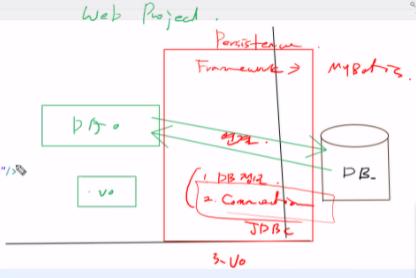 Web Project.
Persistence.
Framework → MyBatis.
DAO
연결.
DB
"/>
VO
1. DB 정보.
2. Connection
JDBC
3. VO